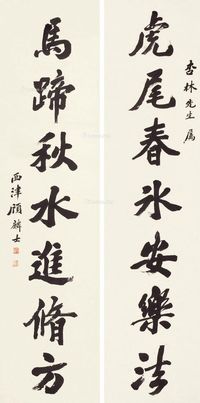 杏林先生属
虎尾春冰安樂法
馬蹄秋水進脩方
西津顧麟士